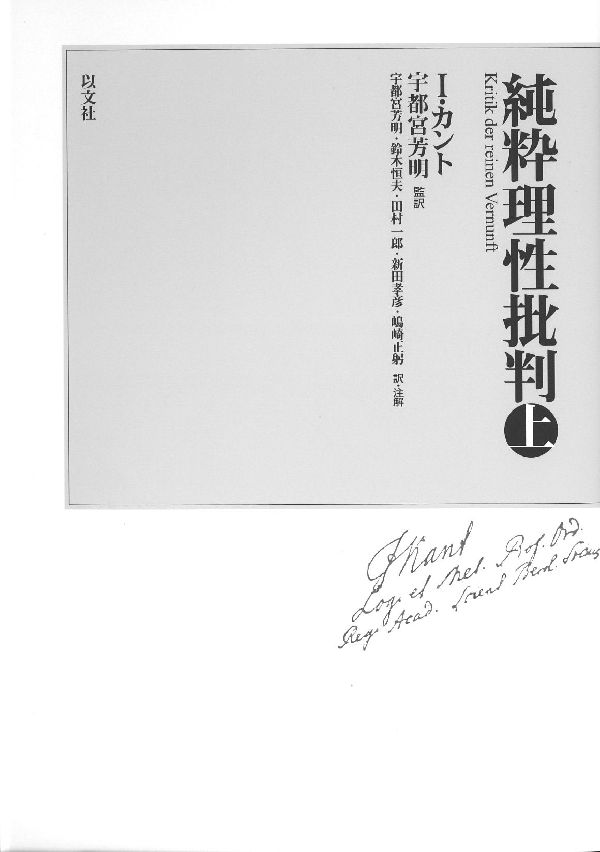 純粋理性批判 上
Kritik der reinen Vernunft
I・カント
宇都宮芳明 監訳
宇都宮芳明・鈴木恒夫・田村一郎・新田孝彦・嶋崎正躬 訳・注解
以文社
I Kant
Log. et Met. Prof. Ord.
Reg. Acad. Scient. Berol. Socius